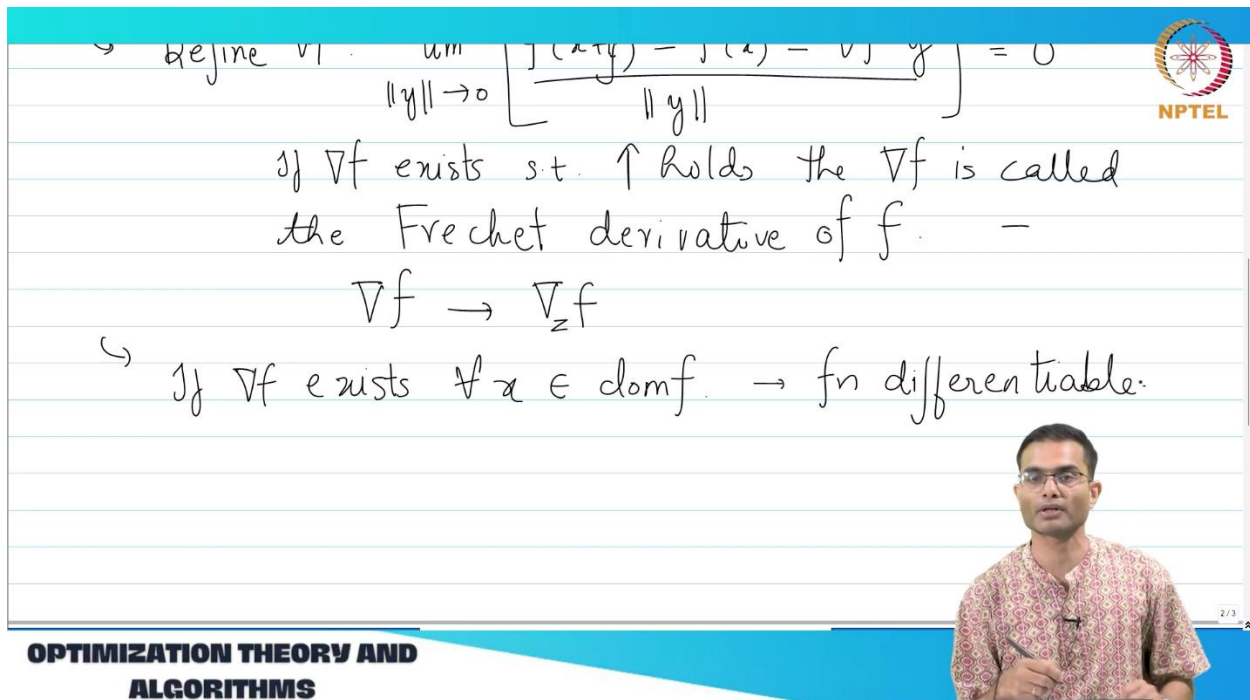 Define ∇f lim [ f(x+y) − f(x) − ∇f y ] = 0
‖y‖→0 ‖y‖
NPTEL
If ∇f exists s.t. ↑ holds the ∇f is called
the Frechet derivative of f. –
∇f → ∇_z f
↳ If ∇f exists ∀ x ∈ domf. → fn differentiable.
2/3
OPTIMIZATION THEORY AND
ALGORITHMS